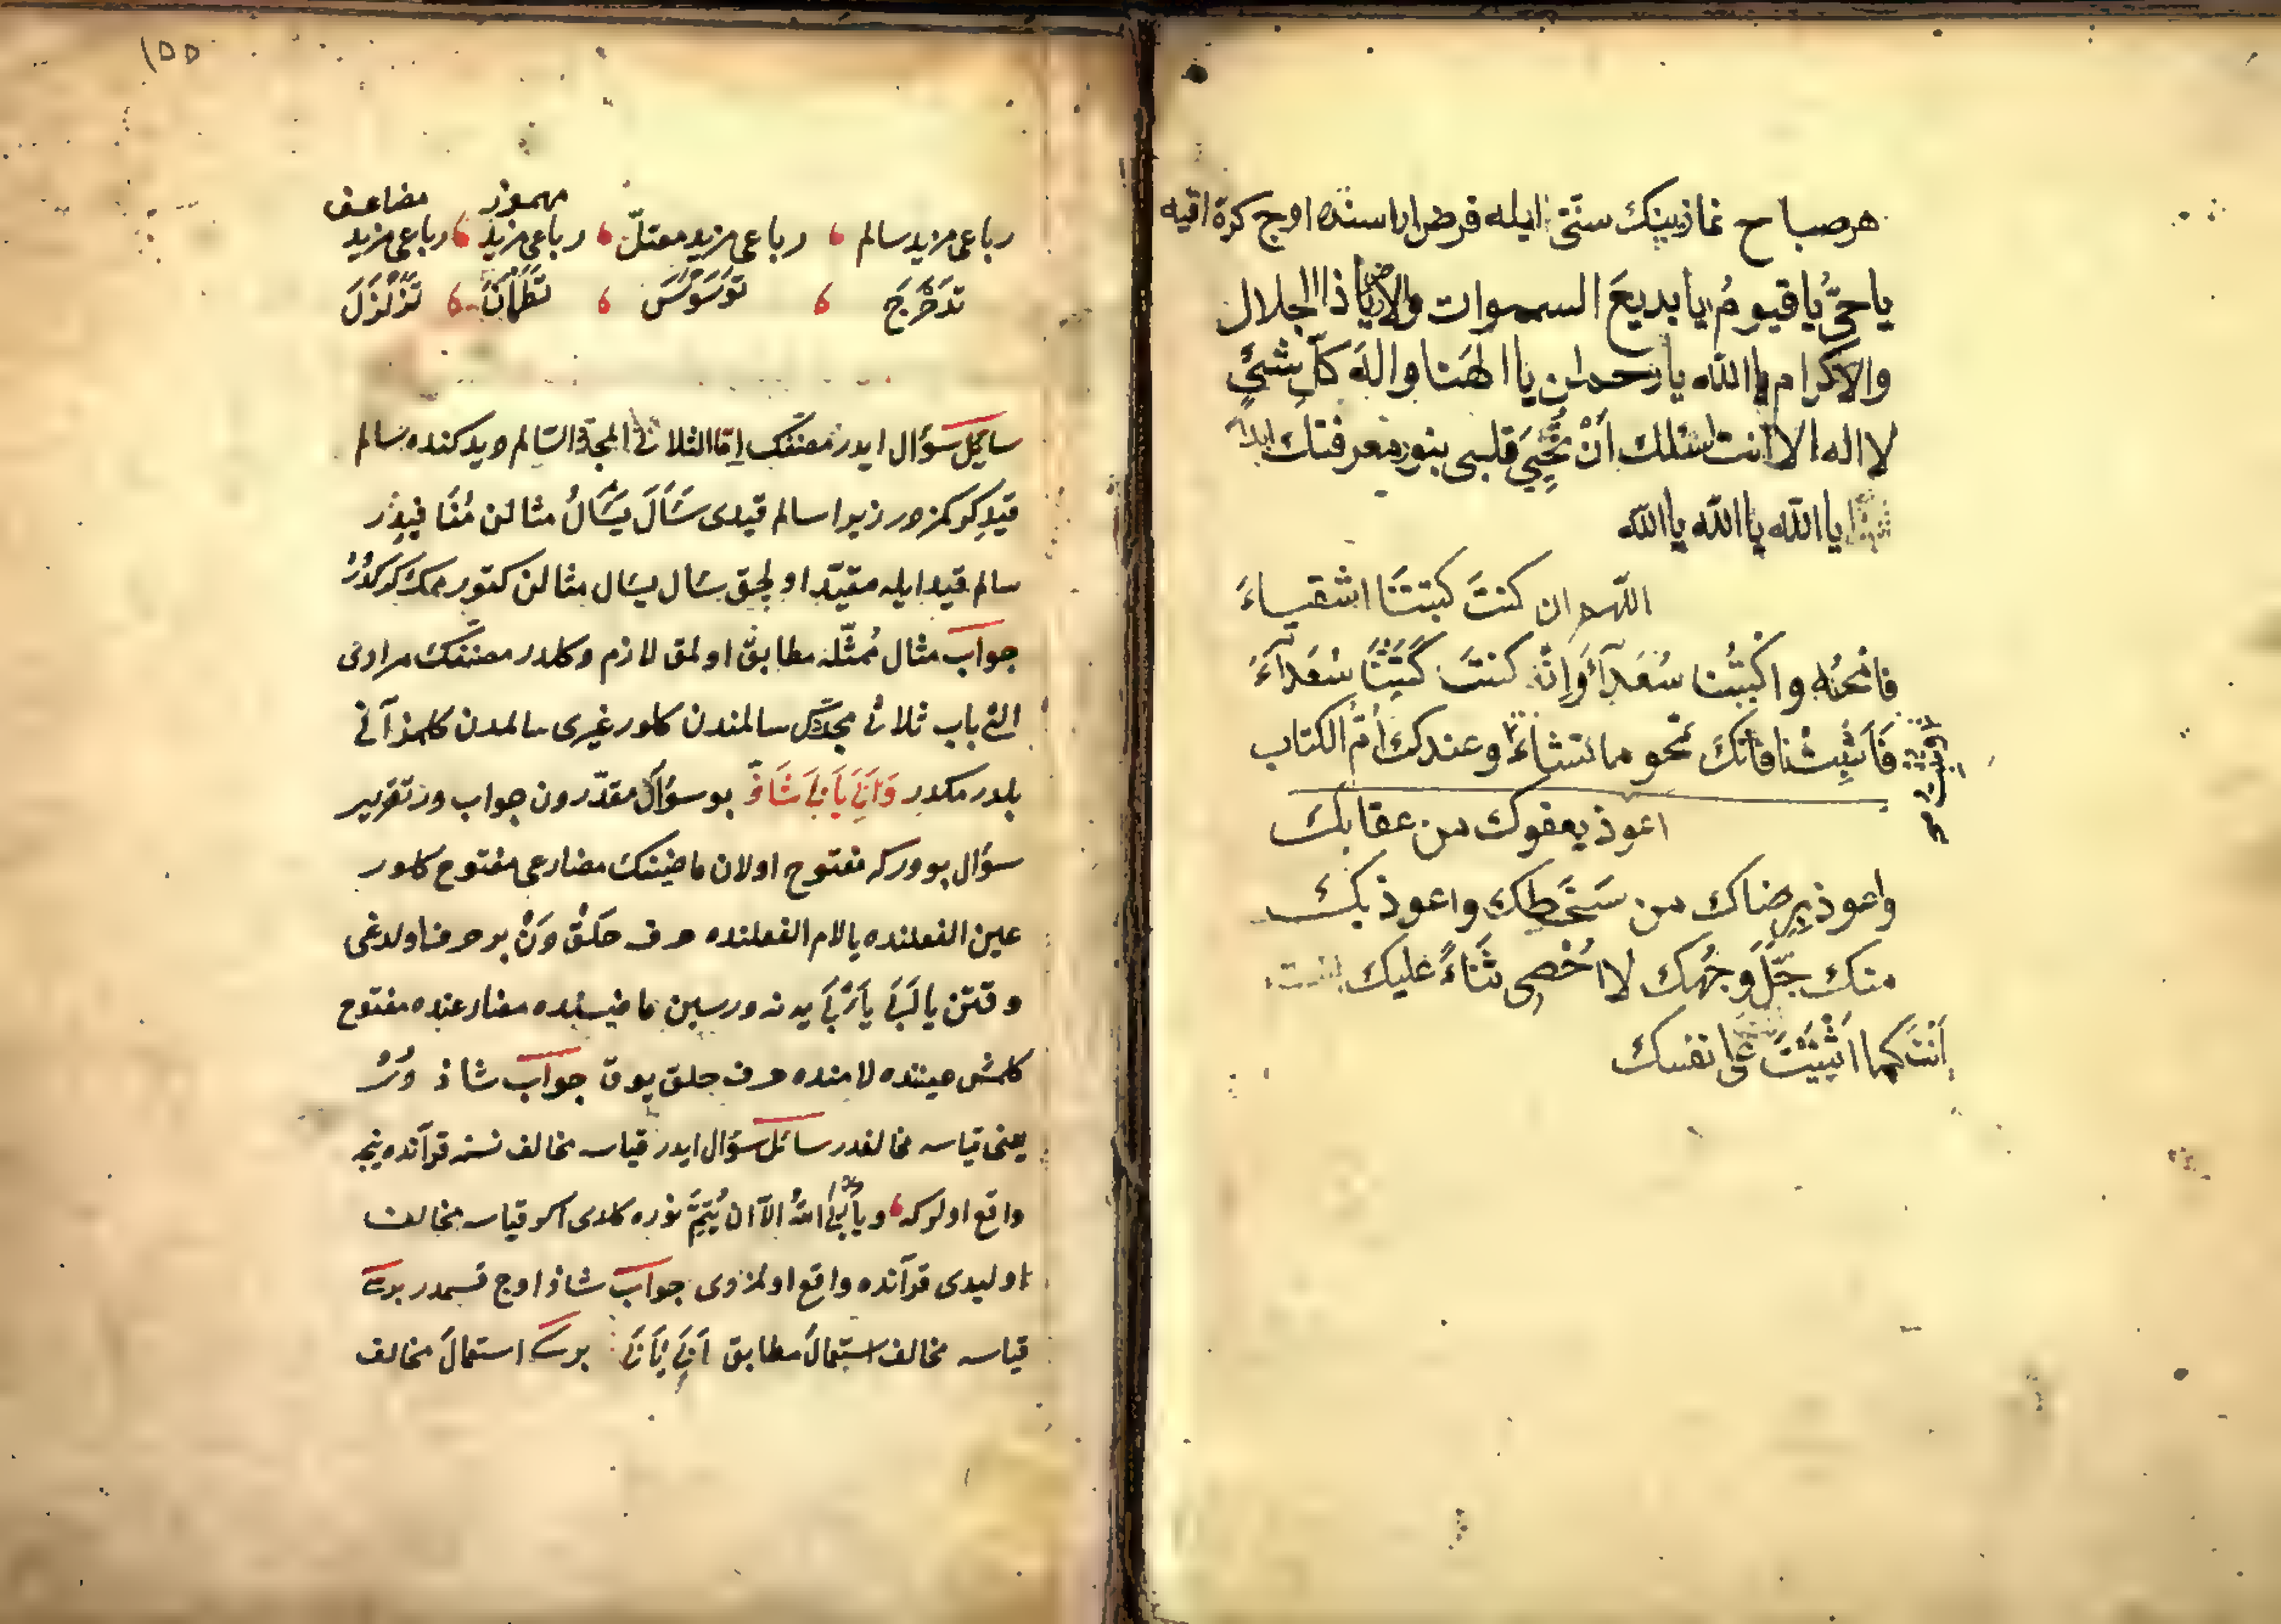 هر صباح نمازينك سنتى ايله فرض اراسنده اوج كره اقيه
ياحيُّ ياقيومُ يابديعَ السموات والارض ياذا الجلال
والاكرام ياالله يارحمان ياالهَنا والهَ كلِّ شئٍ
لااله الا انت اسئلك اَنْ تُحْيِيَ قلبى بنور معرفتك ابداً
ياالله ياالله ياالله
اللهم ان كنتَ كتبتَنا اشقياءَ
فامحُه واكتُبْنا سُعَدآءَ وَاِنْ كنتَ كَتَبْتَنَا سُعَدَآءَ
فَاَثْبِتْنا فانك تمحو ماتشاءُ وعندك اُمّ الكتاب
اعوذ بعفوك من عقابك
واعوذ برضاك من سَخَطِكَ واعوذ بك
منك جَلَّ وَجْهُك لا اُحْصِى ثَناءً عليك
اَنْتَ كما اثنَيْتَ على نفسك
١٥٥
مهموز مضاعف
رباعى مزيد سالم ، رباعى مزيد معتلّ ، رباعى مزيد ، رباعى مزيد
تدَحْرَجَ ، توَسْوَسَ ، تَطَمْأَنَ ، تَزَلْزَلَ
سايل سؤال ايدر مصنفك اِمّا الثلاثى المجرد السّالم ديدكنده سالم
قيدِ كوكمز در زيرا سالم قيدى سَأَلَ يَسْأَلُ مثالن مُنَافِيدِر
سالم قيد ايله مقيّد اولجق سأل يسأل مثالن كتورممك كركدُرْ
جواب مثال مُمَثَّله مطابق اولمق لازم دكلدر مصنفك مرادى
التى باب ثلاثى مجردك سالمندن كلور غيرى سالمدن كلمز آنى
بلدرمكدر وَاَبَى يَأبَى شَاذٌّ بو سؤال مقدّردن جواب در تقرير
سؤال بودركه مفتوح اولان ماضينك مضارعى مفتوح كلور
عين الفعلنده يا لام الفعلنده حرف حَلْقْ دَنْ بر حرف اولدغى
وقتن يا اَبَى يَأْبَى يه نه درسين ماضيسنده مضارعنده مفتوح
كلمش عيننده لامنده حرف حلق يوق جواب شاذ دُرْ
يعنى قياسه مخالفدر سائل سؤال ايدر قياسه مخالف نسنه قرآنده نيجه
واقع اولور كه ، ويأبى اللهُ الاّ ان يُتِمَّ نوره كلدى اكر قياسه مخالف
اوليدى قرآنده واقع اولمزدى جواب شاذ اوج قسمدر برسى
قياسه مخالف استعمالَ مطابق اَبَى يَأبَى برسى استعمالَ مخالف